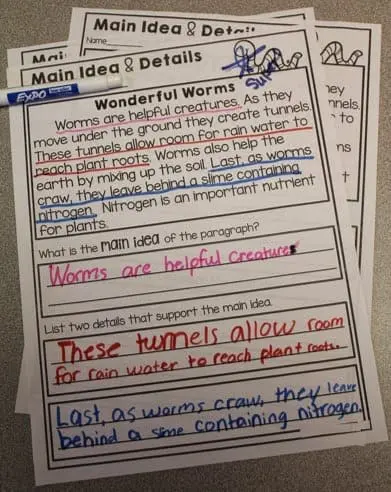 Main Idea & Details
Name
Mai
Main Idea & Details
Super
EXPO
Wonderful Worms
Worms are helpful creatures. As they
move under the ground they create tunnels.
These tunnels allow room for rain water to
reach plant roots. Worms also help the
earth by mixing up the soil. Last, as worms
craw, they leave behind a slime containing
nitrogen. Nitrogen is an important nutrient
for plants.
What is the main idea of the paragraph?
Worms are helpful creatures
List two details that support the main idea.
These tunnels allow room
for rain water to reach plant roots.
Last, as worms craw, they leave
behind a slime containing nitrogen.
hey
nnels.
to
ns
t